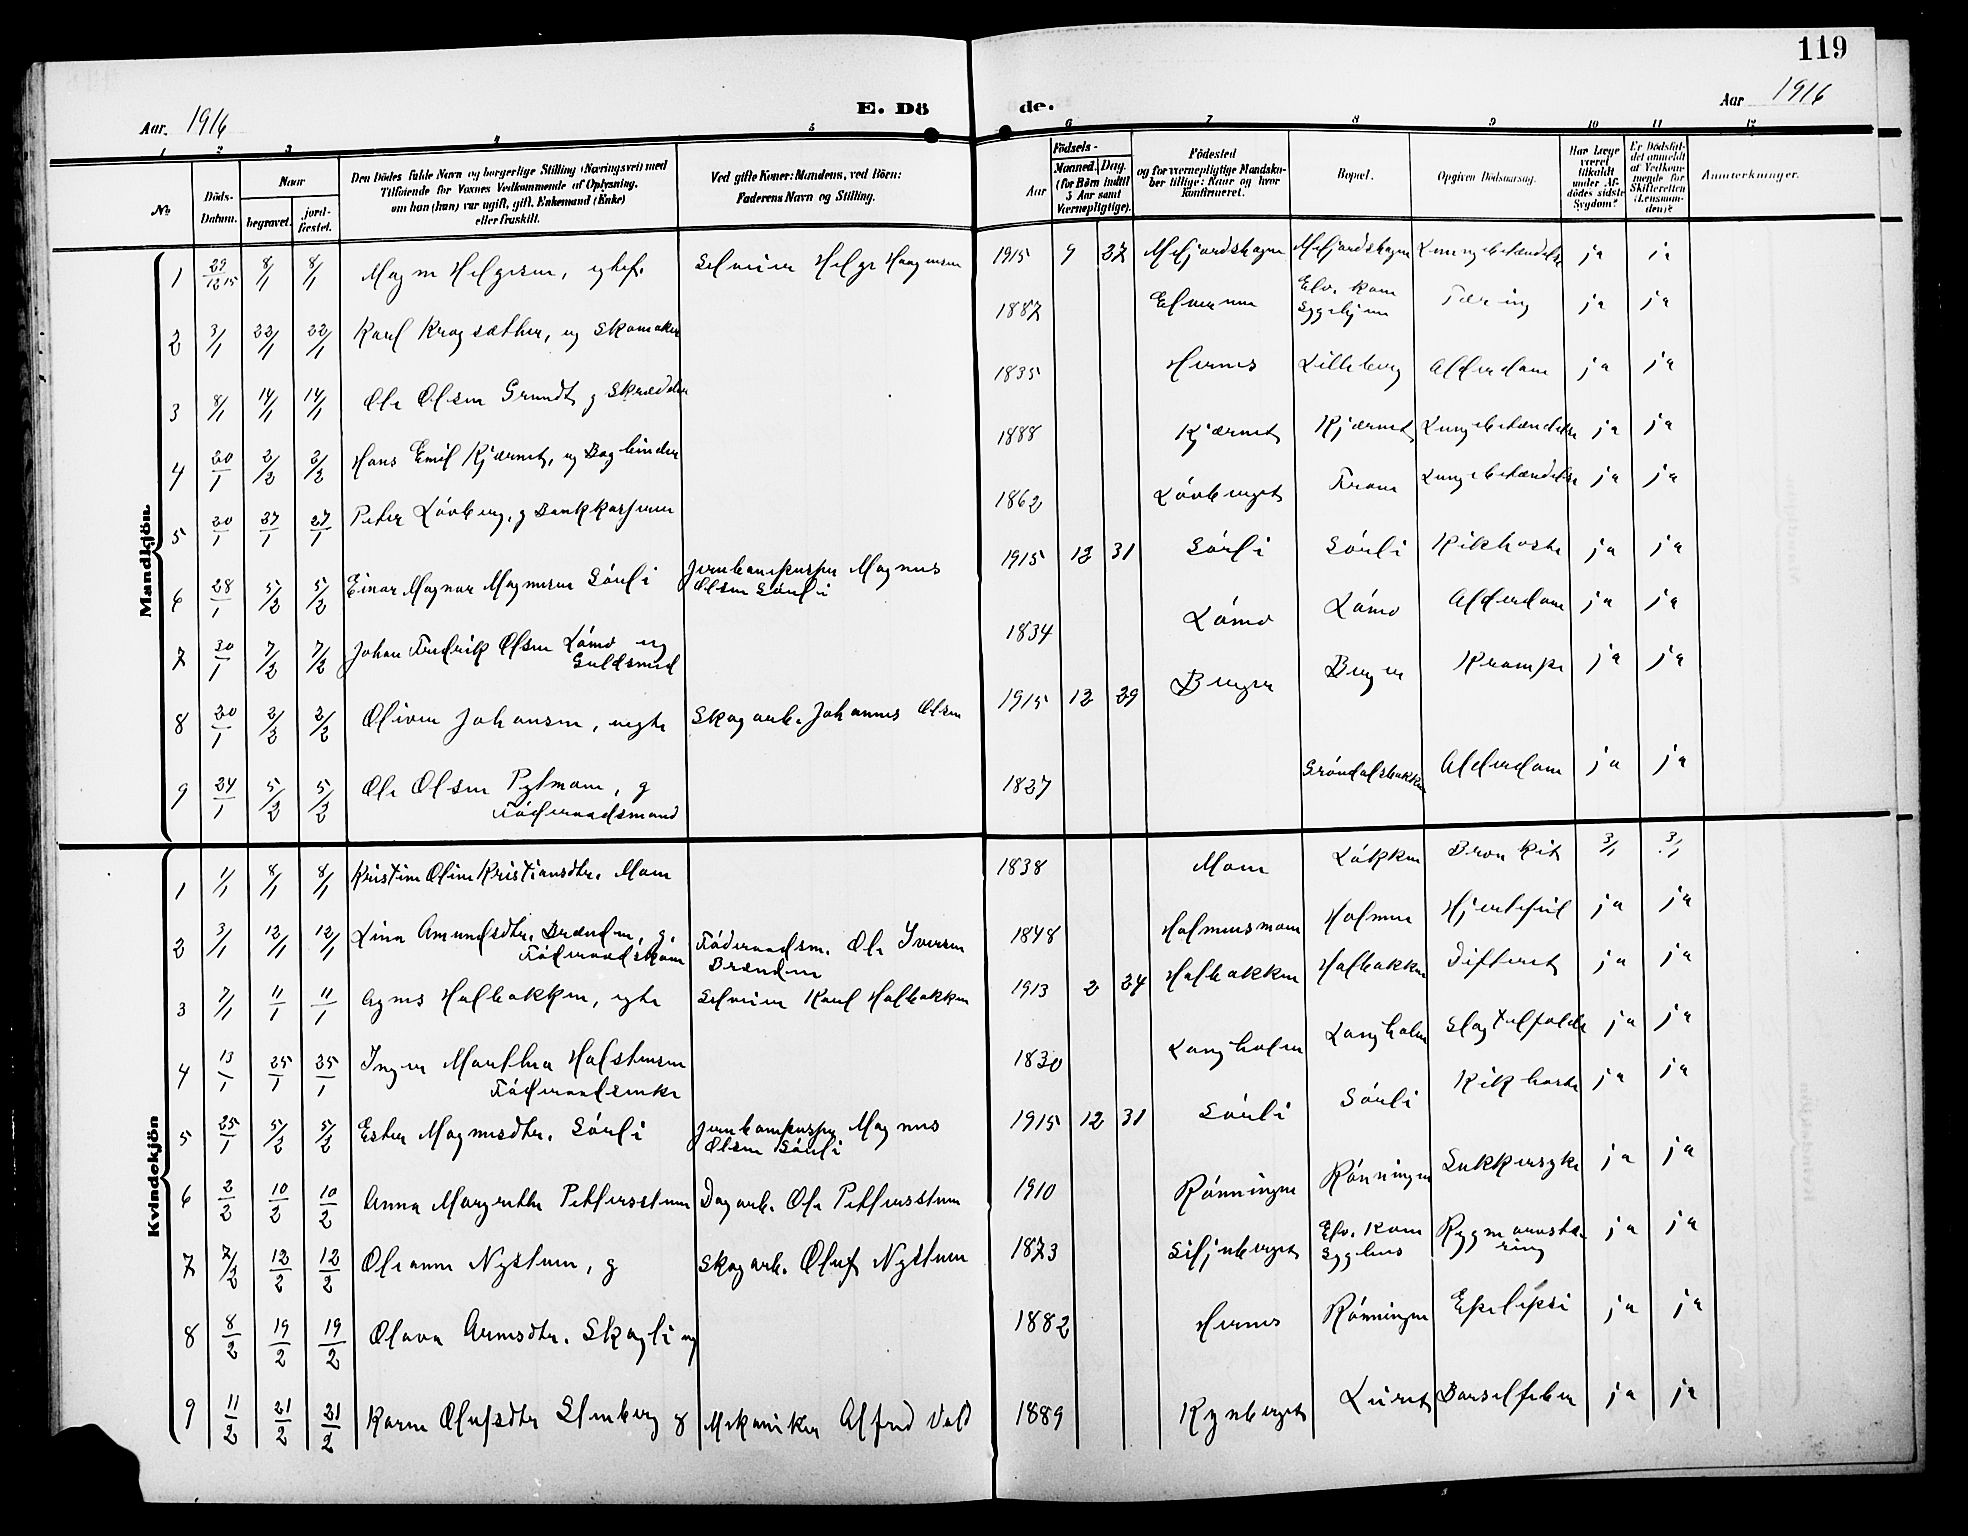 119
Aar. 1916
E. Dö
de.
Aar 1916
1 2 3 4 5 6 7 8 9 10 11 12
No
Döds-
Datum.
Naar
begravet.
jord-
fæstet.
Den Dödes fulde Navn og borgerlige Stilling (Næringsvei) med
Tilføiende for Voxnes Vedkommende af Oplysning,
om han (hun) var ugift, gift, Enkemand (Enke)
eller fraskilt.
Ved gifte Koner: Mandens, ved Börn:
Faderens Navn og Stilling.
Födsels-
Aar
Maaned. Dag.
(for Børn indtil
5 Aar samt
Værnepligtige).
Födested
og for værnepligtige Mandsku-
ber tillige: Naar og hvor
konfirmeret.
Bopæl.
Opgiven Dødsaarsag.
Har Læge
været
tilkaldt
under Af-
dödes sidste
Sygdom?
Er Dödsfal-
det anmeldt
af Vedkom-
mende for
Skifteretten
(Lensman-
den)?
Anmerkninger.
Mandkjön.
1 29/12 15 8/1 8/1 Magn Helgesen, Selveier Helge Haagensen 1915 9 27 Mefjordskogen Mefjordskogen Lungebetændelse ja ja
2 3/1 22/1 22/1 Karl Kragsæther, ug Skomaker 1887 Elverum Elv. Kom Sygehjem Tæring ja ja
3 8/1 14/1 14/1 Ole Olsen Grundt g Skrædder 1835 Hernes Lilleberg Alderdom ja ja
4 20/1 2/2 2/2 Hans Emil Kjærnet, ug Bogbinder 1888 Kjærnet Kjærnet Lungebetændelse ja ja
5 20/1 27/1 27/1 Peter Lövberg, g Bankkasserer 1862 Lövberget Fram Lungebetændelse ja ja
6 28/1 5/2 5/2 Einar Magnar Magnusen Sörli Jernbanepusser Magnus Olsen Sörli 1915 12 31 Sörli Sörli Kikhoste ja ja
7 30/1 7/2 7/2 Johan Fredrik Olsen Lömo ug Guldsmed 1834 Lömo Lömo Alderdom ja ja
8 20/1 2/2 2/2 Oliver Johansen, uegte Skogarb. Johannes Olsen 1915 12 29 Berger Berger Krampe ja ja
9 24/1 5/2 5/2 Ole Olsen Pytmoen, g Föderaadsmand 1827 Gröndalsbakken Alderdom ja ja
Kvindekjön
1 1/1 8/1 8/1 Kristine Oline Kristiansdtr. Moen 1838 Moen Lökken Bronkit 3/1 3/1
2 3/1 12/1 12/1 Lina Amundsdtr. Brænden, g. Föderaadskone Föderaadsm. Ole Iversen Brænden 1848 Holmensmoen Holmen Hjertefeil ja ja
3 7/1 11/1 11/1 Agnes Holbakken, egte Selveier Karl Holbakken 1913 2 24 Holbakken Holbakken Difterit ja ja
4 13/1 25/1 25/1 Inger Marthea Halstensen Föderaadsenke 1830 Langholen Langholen Slagtilfælde ja ja
5 25/1 5/2 5/2 Ester Magnusdtr. Sörli Jernbanepusser Magnus Olsen Sörli 1915 12 31 Sörli Sörli Kikhoste ja ja
6 2/2 10/2 10/2 Anna Margrethe Pettersstuen Dagarb. Ole Pettersstuen 1910 Rönningen Rönningen Sukkersyke ja ja
7 7/2 12/2 12/2 Oleanne Nystuen, g Skogarb. Oluf Nystuen 1873 Siljuberget Elv. Kom Sygehus Rygmarvstæring ja ja
8 8/2 19/2 19/2 Olava Arnesdtr. Skogli ug 1882 Hernes Rönningen Epilepsi ja ja
9 11/2 21/2 21/2 Karen Olufsdtr Stenberg g Mekaniker Alfred Vold 1889 Kynberget Leiret Barselfeber ja ja